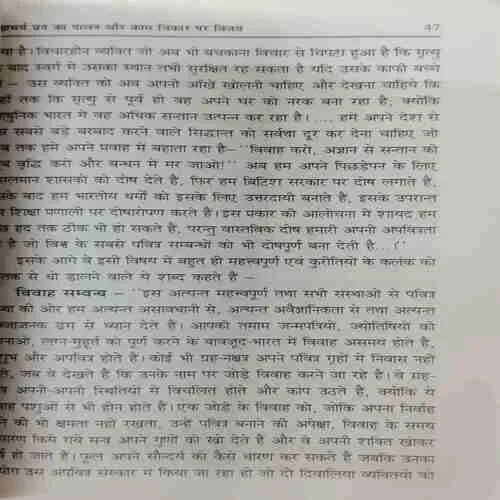 ह्मचर्य व्रत का पालन और काम विकार पर विजय 47
या है। विचारहीन व्यक्ति जो अब भी बचकाना विचार से चिपटा हुआ है कि मृत्यु
बाद स्वर्ग में उसका स्थान तभी सुरक्षित रह सकता है यदि उसके काफी बच्चे
– उस व्यक्ति को अब अपनी आँखें खोलनी चाहिए और देखना चाहिये कि
हाँ तक कि मृत्यु से पूर्व ही वह अपने घर को नरक बना रहा है, क्योंकि
ाधुनिक भारत में वह अधिक सन्तान उत्पन्न कर रहा है।.... हमें अपने देश से
स सबसे बड़े बरबाद करने वाले सिद्धान्त को सर्वथा दूर कर देना चाहिए जो
ब तक हमें अपने प्रवाह में बहाता रहा है– ''विवाह करो, अज्ञान से सन्तान की
ब वृद्धि करो और बन्धन में मर जाओ!'' अब हम अपने पिछड़ेपन के लिए
सलमान शासकों को दोष देते हैं, फिर हम ब्रिटिश सरकार पर दोष लगाते हैं,
के बाद हम भारतीय धर्मों को इसके लिए उत्तरदायी बनाते हैं, इसके उपरान्त
शिक्षा प्रणाली पर दोषारोपण करते हैं। इस प्रकार की आलोचना में शायद हम
छ हद तक ठीक भी हो सकते हैं, परन्तु वास्तविक दोष हमारी अपनी अपवित्रता
है जो विश्व के सबसे पवित्र सम्बन्धों को भी दोषपूर्ण बना देती है...(''
इसके आगे वे इसी विषय में बहुत ही महत्त्वपूर्ण एवं कुरीतियों के कलंक को
तक से धो डालने वाले ये शब्द कहते हैं –
विवाह सम्बन्ध – ''इस अत्यन्त महत्त्वपूर्ण तथा सभी संस्थाओं से पवित्र
स्था की ओर हम अत्यन्त असावधानी से, अत्यन्त अवैज्ञानिकता से तथा अत्यन्त
ज्जाजनक ढंग से ध्यान देते हैं। आपकी तमाम जन्मपत्रियों, ज्योतिषियों की
नाओं, लग्न-मुहूर्त को पूर्ण करने के बावजूद-भारत में विवाह असमय होते हैं,
शुभ और अपवित्र होते हैं। कोई भी ग्रह-नक्षत्र अपने पवित्र गृहों में निवास नहीं
ते, जब वे देखते हैं कि उनके नाम पर जोड़े विवाह करने जा रहे हैं। वे ग्रह-
त्र अपनी-अपनी स्थितियों में विचलित होते और काँप उठते हैं, क्योंकि ये
वाह पशुओं से भी हीन होते हैं। एक जोड़े के विवाह को, जोकि अपना निर्वाह
ने की भी क्षमता नहीं रखता, उन्हें पवित्र बनाने की अपेक्षा, विवाह के समय
चारण किये गये मन्त्र अपने गुणों को खो देते हैं और वे अपनी शक्ति खोकर
र्थ हो जाते हैं। फूल अपने सौन्दर्य को कैसे धारण कर सकते हैं जबकि उनका
योग उस अपवित्र संस्कार में किया जा रहा हो जो दो दिवालिया व्यक्तियों को